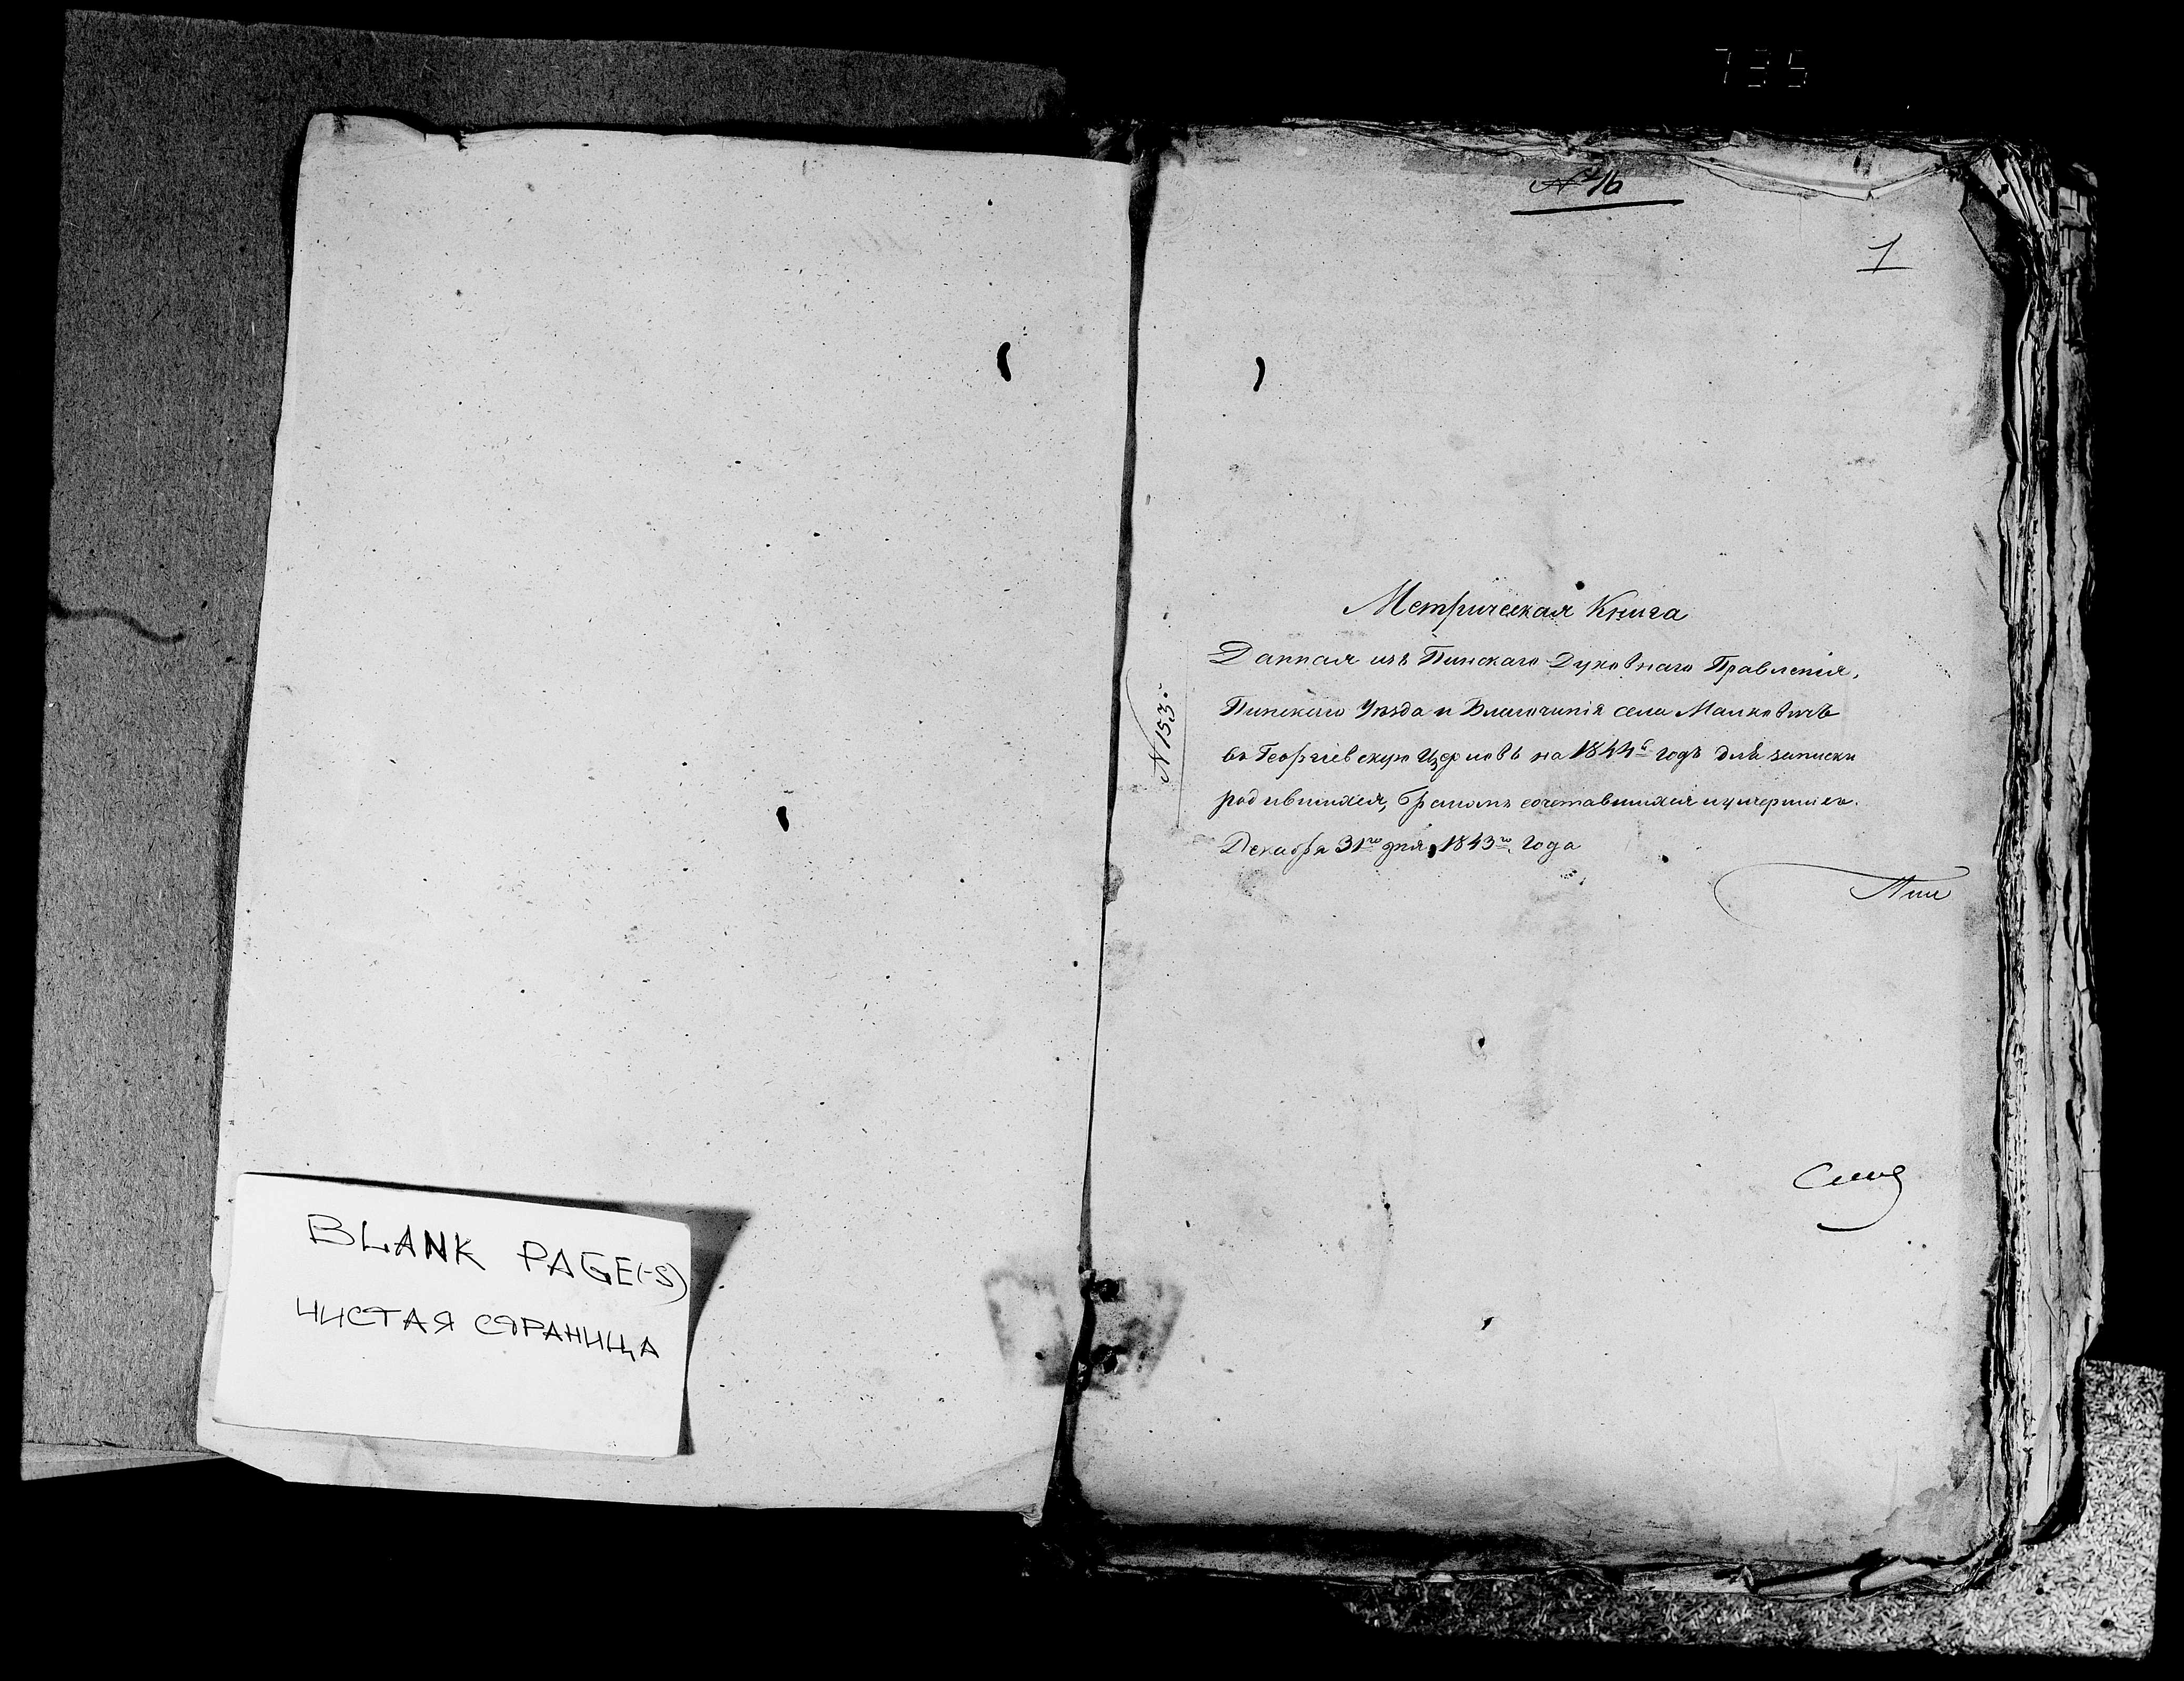 735
№ 16
1
Метрическая Книга
Данная изъ Пинскаго Духовнаго Правленія,
Пинскаго Уѣзда и Благочинія села Малковичь
въ Георгіевскую Церковь на 1844й годъ для записки
родившихся, бракомъ сочетавшихся и умершихъ.
Декабря 31го дня 1843го года
№ 153.
Пин
BLANK PAGE(-S)
ЧИСТАЯ СТРАНИЦА